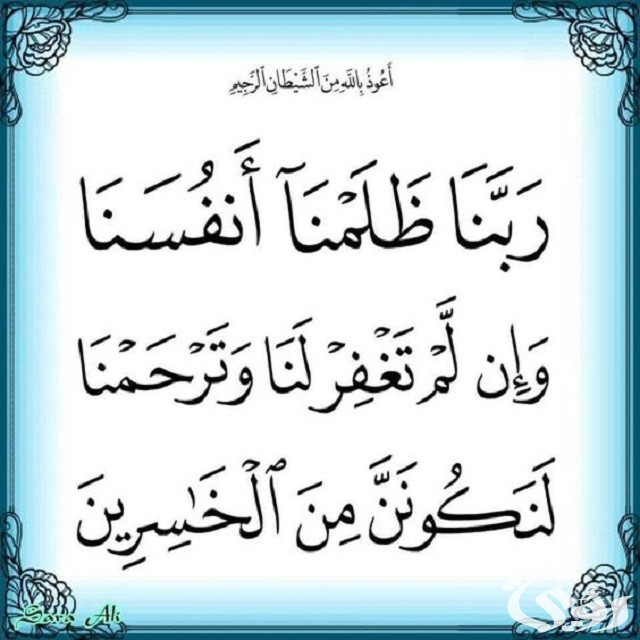 أَعُوذُ بِاللَّهِ مِنَ الشَّيْطَانِ الرَّجِيمِ
رَبَّنَا ظَلَمْنَآ أَنفُسَنَا
وَإِن لَّمْ تَغْفِرْ لَنَا وَتَرْحَمْنَا
لَنَكُونَنَّ مِنَ ٱلْخَـٰسِرِينَ
Sara Ali